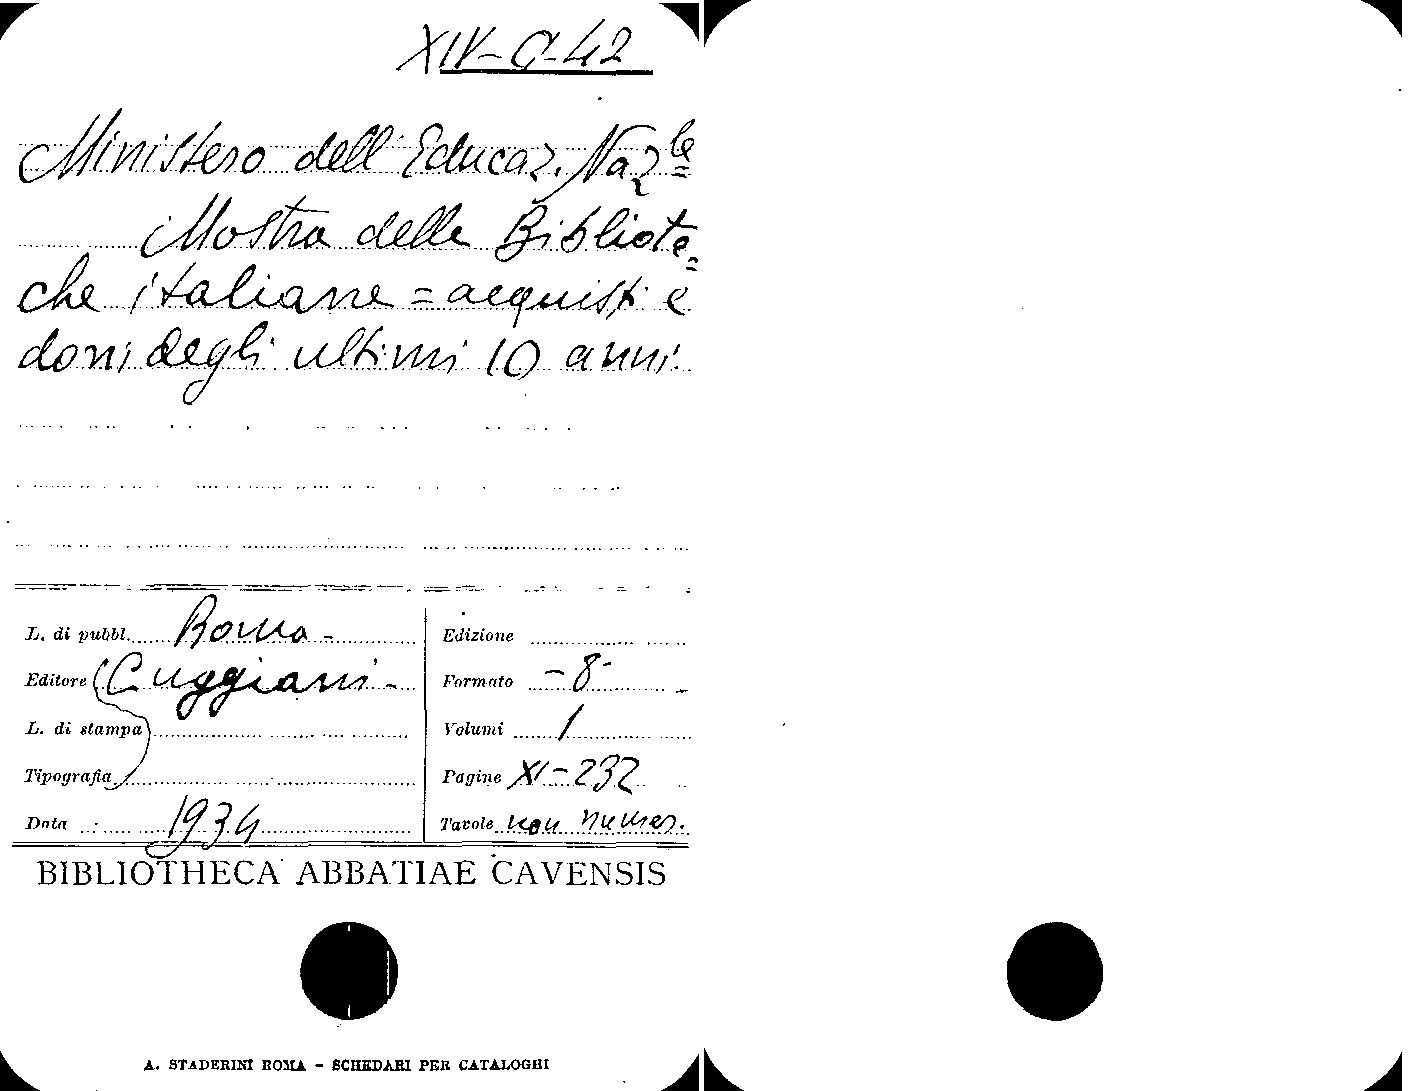 XIV-G-42
Ministero dell'Educaz. Naz.le
Mostra delle Bibliote=
che italiane = acquisti e
doni degli ultimi 10 anni.
L. di pubbl. Roma -
Editore Cuggiani -
L. di stampa
Tipografia
Data 1934
Edizione
Formato - 8 -
Volumi 1
Pagine XI-232
Tavole non numer.
BIBLIOTHECA ABBATIAE CAVENSIS
A. STADERINI ROMA - SCHEDARI PER CATALOGHI